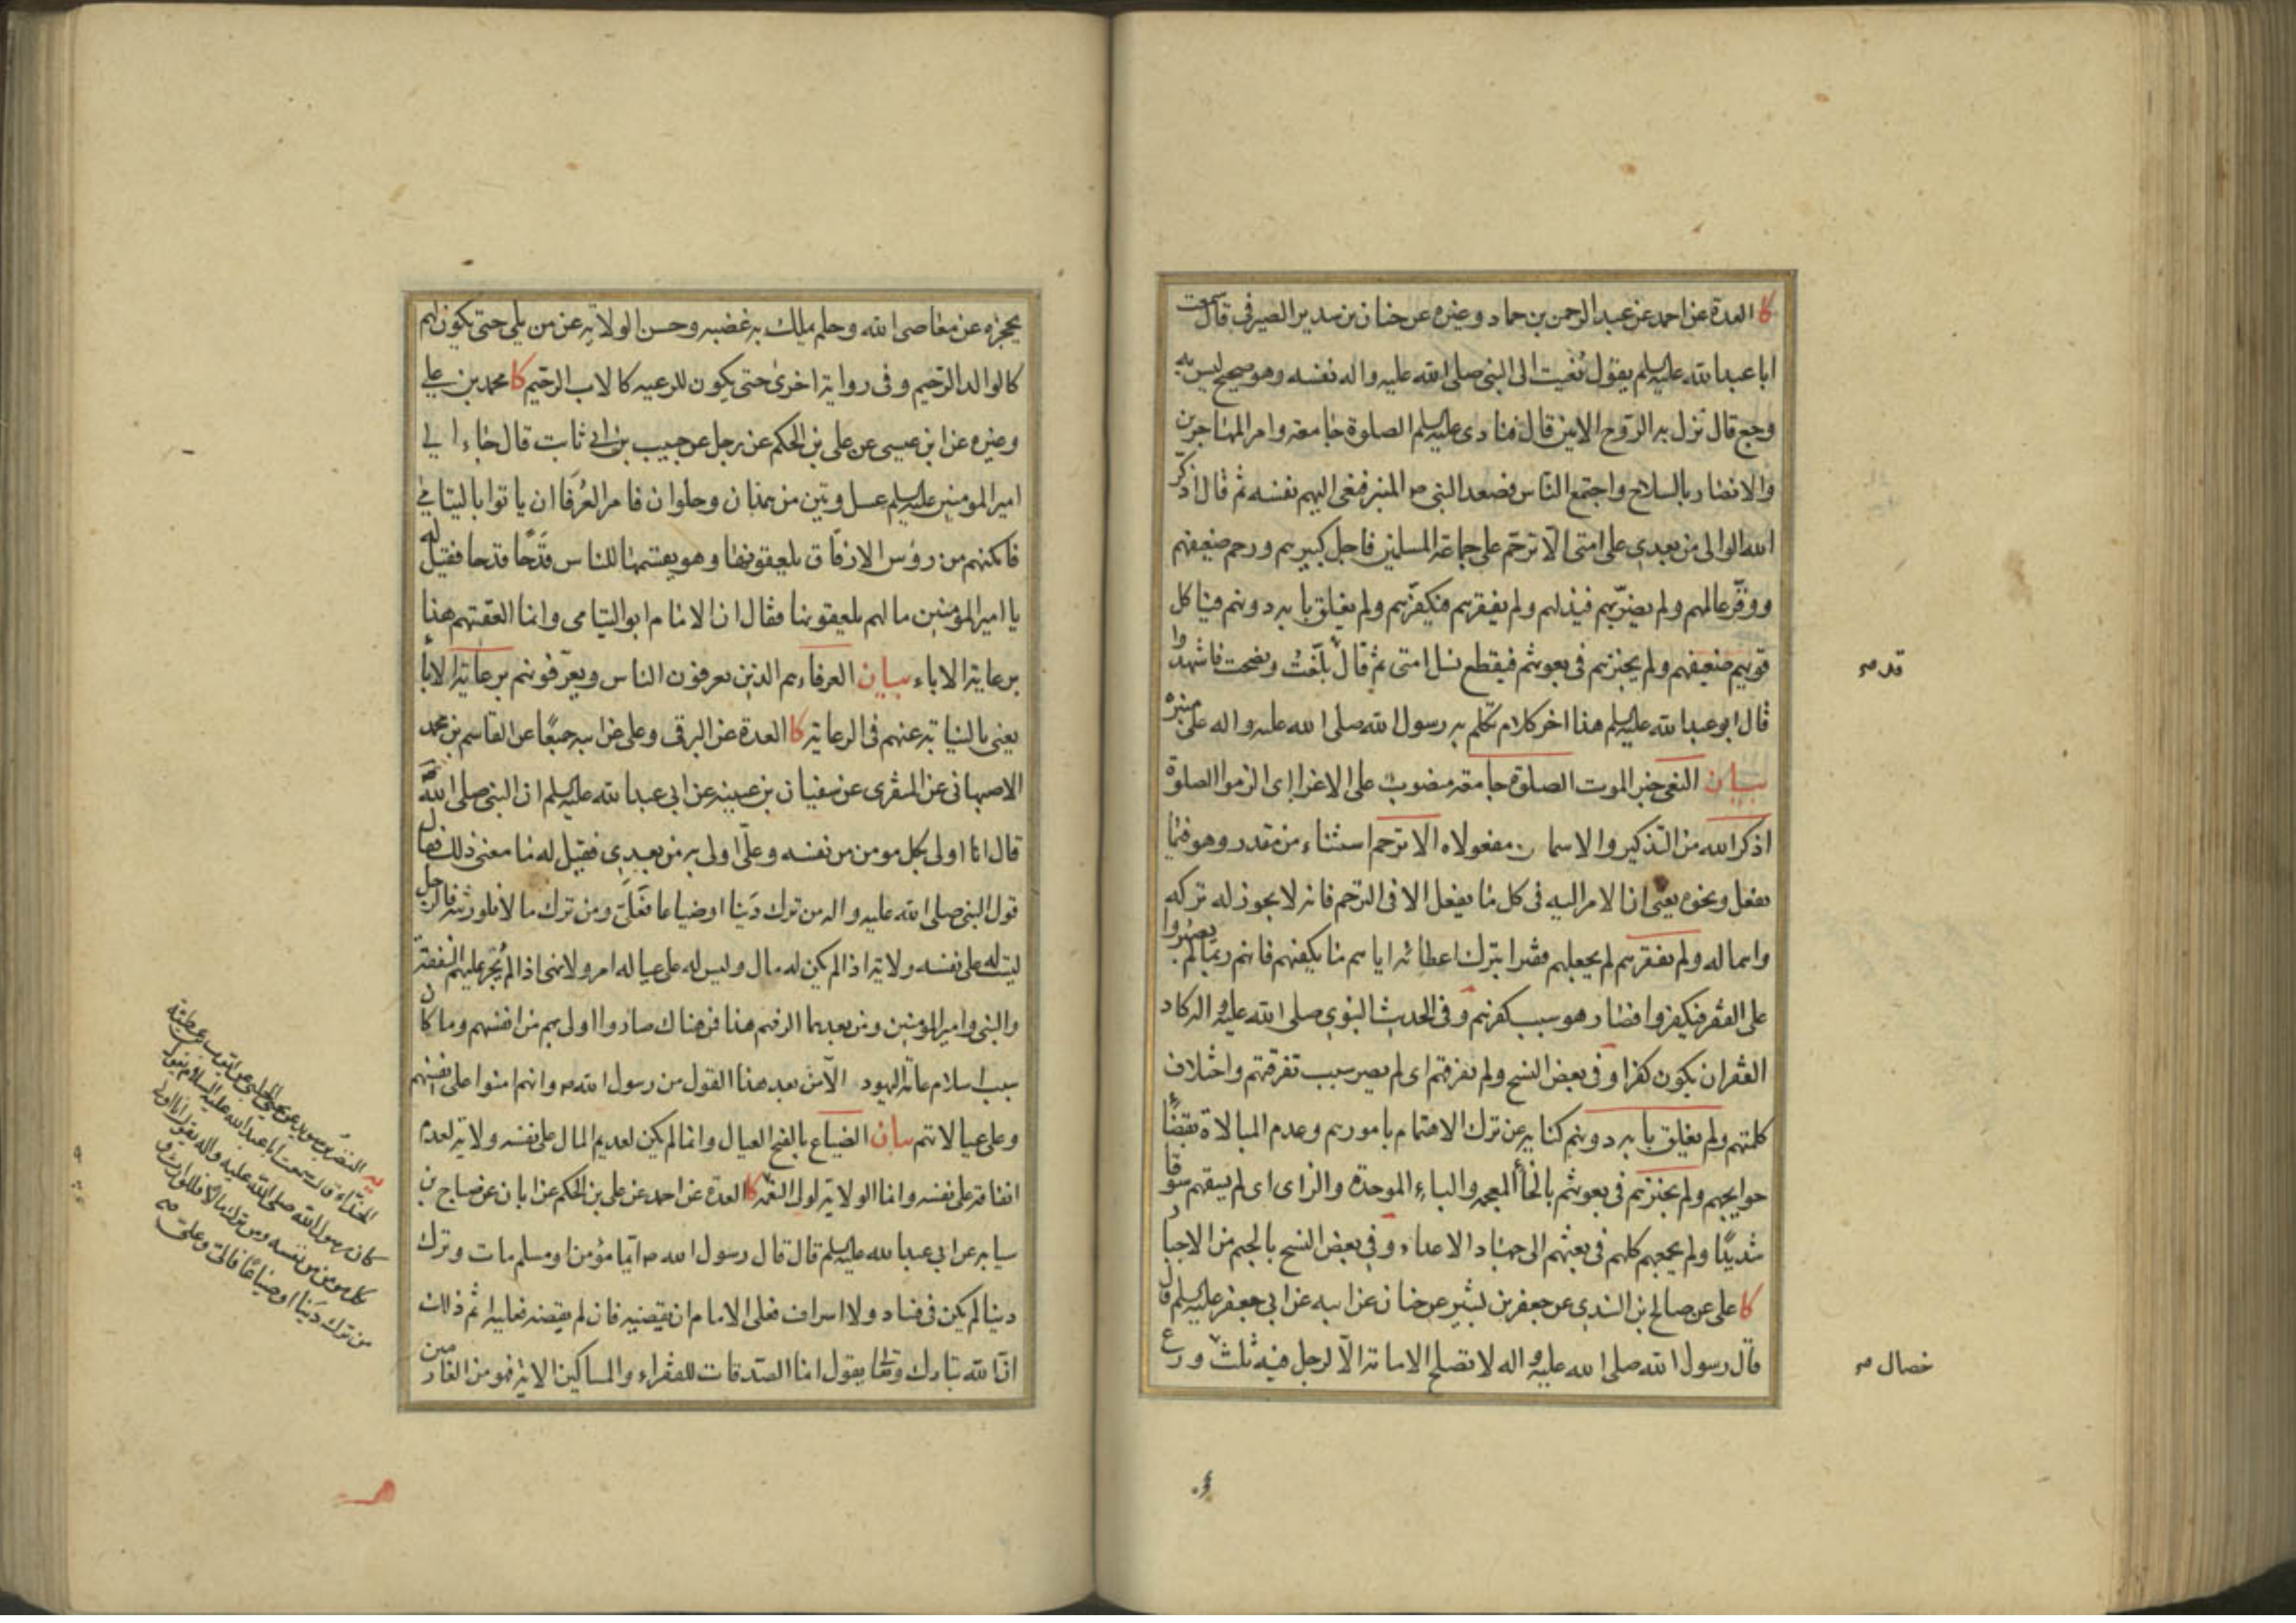 كا العدة عن احمد عن عبد الرحمن بن حماد وغيره عن حنان بن سدير الصيرفى قال سمعت
ابا عبد الله عليه السلم يقول نُعيت الى النبى صلى الله عليه واله نفسه وهو صحيح ليس به
وجع قال نزل به الروح الامين قال فنادى عليه السلم الصلوة جامعة وامر المهاجرين
والانصار بالسلاح واجتمع الناس فصعد النبى ص المنبر فنعى اليهم نفسه ثم قال اذكّر
الله الوالى من بعدى على امتى الّا ترحّم على جماعة المسلمين فاجل كبيرهم ورحم ضعيفهم
ووقّر عالمهم ولم يضرّبهم فيذلهم ولم يفقرهم فيكفرهم ولم يغلق بابه دونهم فياكل
قويهم ضعيفهم ولم يخبزهم فى بعوثهم فيقطع نسل امتى ثم قال بلّغتُ ونصحت فاشهدوا
قال ابو عبد الله عليه السلم هذا اخر كلام تكلم به رسول الله صلى الله عليه واله على منبره
بيان النعى خبر الموت الصلوة جامعة منصوب على الاغراء اى الزموا الصلوة
اذكر الله من التذكير والاسمان مفعولاه الا ترحم استثناء من مقدر وهو فيما
يفعل ونحوه يعنى ان الامر اليه فى كل ما يفعل الا فى الترحم فانه لا يجوز له تركه
واهماله ولم يفقرهم لم يجعلهم فقراء بترك اعطائه اياهم ما يكفيهم فانهم ربما لم يصبروا
على الفقر فيكفروا فصار هو سبب كفرهم وفى الحديث النبوى صلى الله عليه واله كاد
الفقر ان يكون كفرا وفى بعض النسخ ولم يفرقهم اى لم يصر سبب تفرقتهم واختلاف
كلمتهم ولم يغلق بابه دونهم كناية عن ترك الاهتمام بامورهم وعدم المبالاة بقضاء
حوايجهم ولم يخبزهم فى بعوثهم بالخاء المعجمه والباء الموحدة والزاى اى لم يسقهم سوقا
شديدًا ولم يجمعهم كلهم فى بعثهم الى جهاد الاعداء وفى بعض النسخ بالجيم من الاجبار
كا على عن صالح بن السندى عن جعفر بن بشير عن حنان عن ابيه عن ابى جعفر عليه السلم قال
قال رسول الله صلى الله عليه واله لا تصلح الامامة الّا لرجل فيه ثلث ورع
قد ص
خصال ص
يحجزه عن معاصى الله وحلم يملك به غضبه وحسن الولاية عن من يلى حتى يكون لهم
كالوالد الرحيم وفى رواية اخرى حتى يكون للرعيه كالاب الرحيم كا محمد بن على
وغيره عن ابن عيسى عن على بن الحكم عن رجل عن حبيب بن ابى ثابت قال جاء الى
امير المومنين عليه السلم عسل وتين من همذان وحلوان فامر العُرَفا ان ياتوا باليتامى
فامكنهم من رؤس الازقاق يلعقونها وهو يقسمها للناس قَدَحًا قدحا فقيل له
يا امير المؤمنين ما لهم يلعقونها فقال ان الامام ابو اليتامى وانما العقتهم هذا
برعاية الاباء بيان العرفاء هم الذين يعرفون الناس ويعرّفونهم برعاية الاباء
يعنى بالنيابة عنهم فى الرعاية كا العدة عن البرقى وعلى عن ابيه جميعًا عن القاسم بن محمد
الاصبهانى عن المنقرى عن سفيان بن عيينه عن ابى عبد الله عليه السلم ان النبى صلى الله
قال انا اولى بكل مومن من نفسه وعلىّ اولى به من بعدى فقيل له ما معنى ذلك فقال
قول النبى صلى الله عليه واله من ترك دَينا او ضياعا فعَلَىّ ومن ترك مالا فلورثته فالرجل
ليست له على نفسه ولاية اذا لم يكن له مال وليس له على عياله امر ولا نهى اذا لم يُجر عليهم النفقة
والنبى وامير المؤمنين ومن بعدهما الزمهم هذا فمن هناك صاروا اولى بهم من انفسهم وما كان
سبب اسلام عامة اليهود الّا من بعد هذا القول من رسول الله ص وانهم امنوا على انفسهم
وعلى عيالاتهم بيان الضياع بالفتح العيال وانما لم يكن لعديم المال على نفسه ولاية لعدم
انفاقه على نفسه وانما الولاية لولى النعمه كا العدة عن احمد عن على بن الحكم عن ابان عن صباح بن
سيابه عن ابى عبد الله عليه السلم قال قال رسول الله ص ايّما مؤمن او مسلم مات وترك
دينا لم يكن فى فساد ولا اسراف فعلى الامام ان يقضيه فان لم يقضه فعليه اثم ذلك
ان الله تبارك وتعالى يقول انما الصدقات للفقراء والمساكين الاية فهو من الغارمين
يب النضر بن سويد عن يحيى الحلبى عن ايوب بن عطية
الحذّاء قال سمعت ابا عبد الله عليه السلام يقول
كان رسول الله صلى الله عليه واله يقول انا اولى
بكل مومن من نفسه ومن ترك مالاً فللوارث و
من ترك دَينا او ضياعًا فالىّ وعلىّ ص